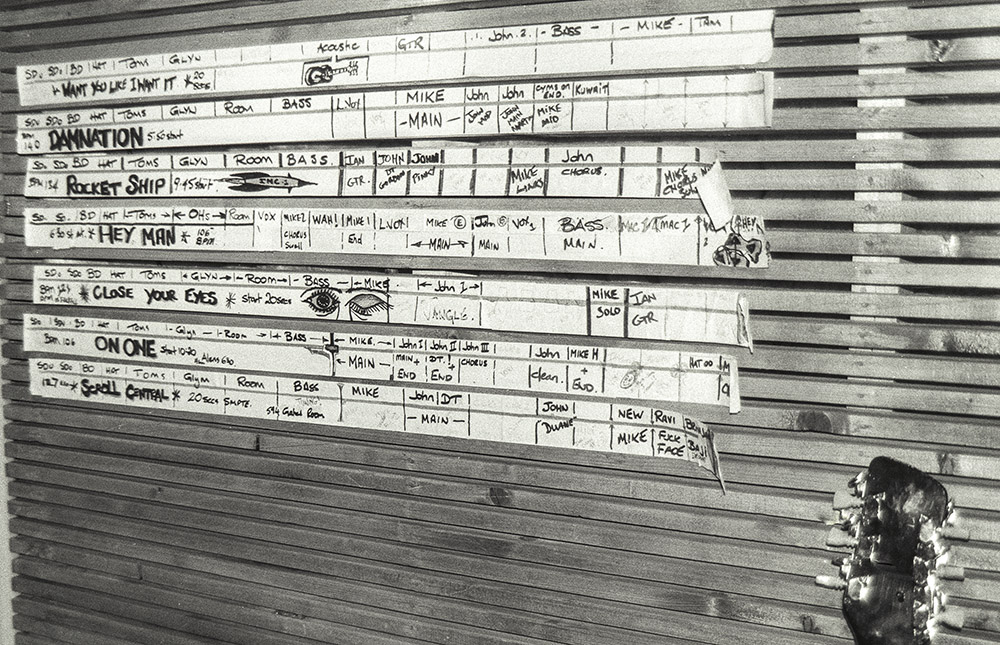 Acoustic GTR John 2. BASS MIKE TAM
SD. SD. BD HAT Toms GLYN
WANT YOU LIKE I WANT IT * 20 SECS
SD. BD HAT TOMS GLYN Room BASS L.Vox MIKE John John CYMS ON END. KUWAIT
140 DAMNATION 5.50 start -MAIN- MIKE MID
SD. SD. BD HAT TOMS GLYN Room BASS. IAN JOHN JOHN John
ROCKET SHIP 9.45 start GTR. DT GORDON PINKY MIKE LINKS CHORUS. MIKE CHORUS
SD. SD. BD HAT TOMS OHs Room VOX MIKE 2 WAH! MIKE 1 L.VOX MIKE E John E VOX BASS MAC 2 MAC 1 HEY
* HEY MAN * 106 BPM CHORUS End MAIN MAIN MAIN.
SD. SD. BD HAT TOMS GLYN Room BASS MIKE John 1 MIKE IAN
* CLOSE YOUR EYES * start 20secs JANGLE. SOLO GTR
SD. BD HAT Toms Glyn Room BASS MIKE. John I John II John III John MIKE H HAT OO
BPM 106 ON ONE start 10.20 MAIN MAIN + END DT! + END CHORUS clean. + END.
SD. SD. BD HAT TOMS Glyn Room BASS MIKE John DT JOHN NEW RAVI BRIAN
* SCROLL CENTRAL * 20 secs SMPTE. Gated Room -MAIN- DUANE MIKE FUCK FACE